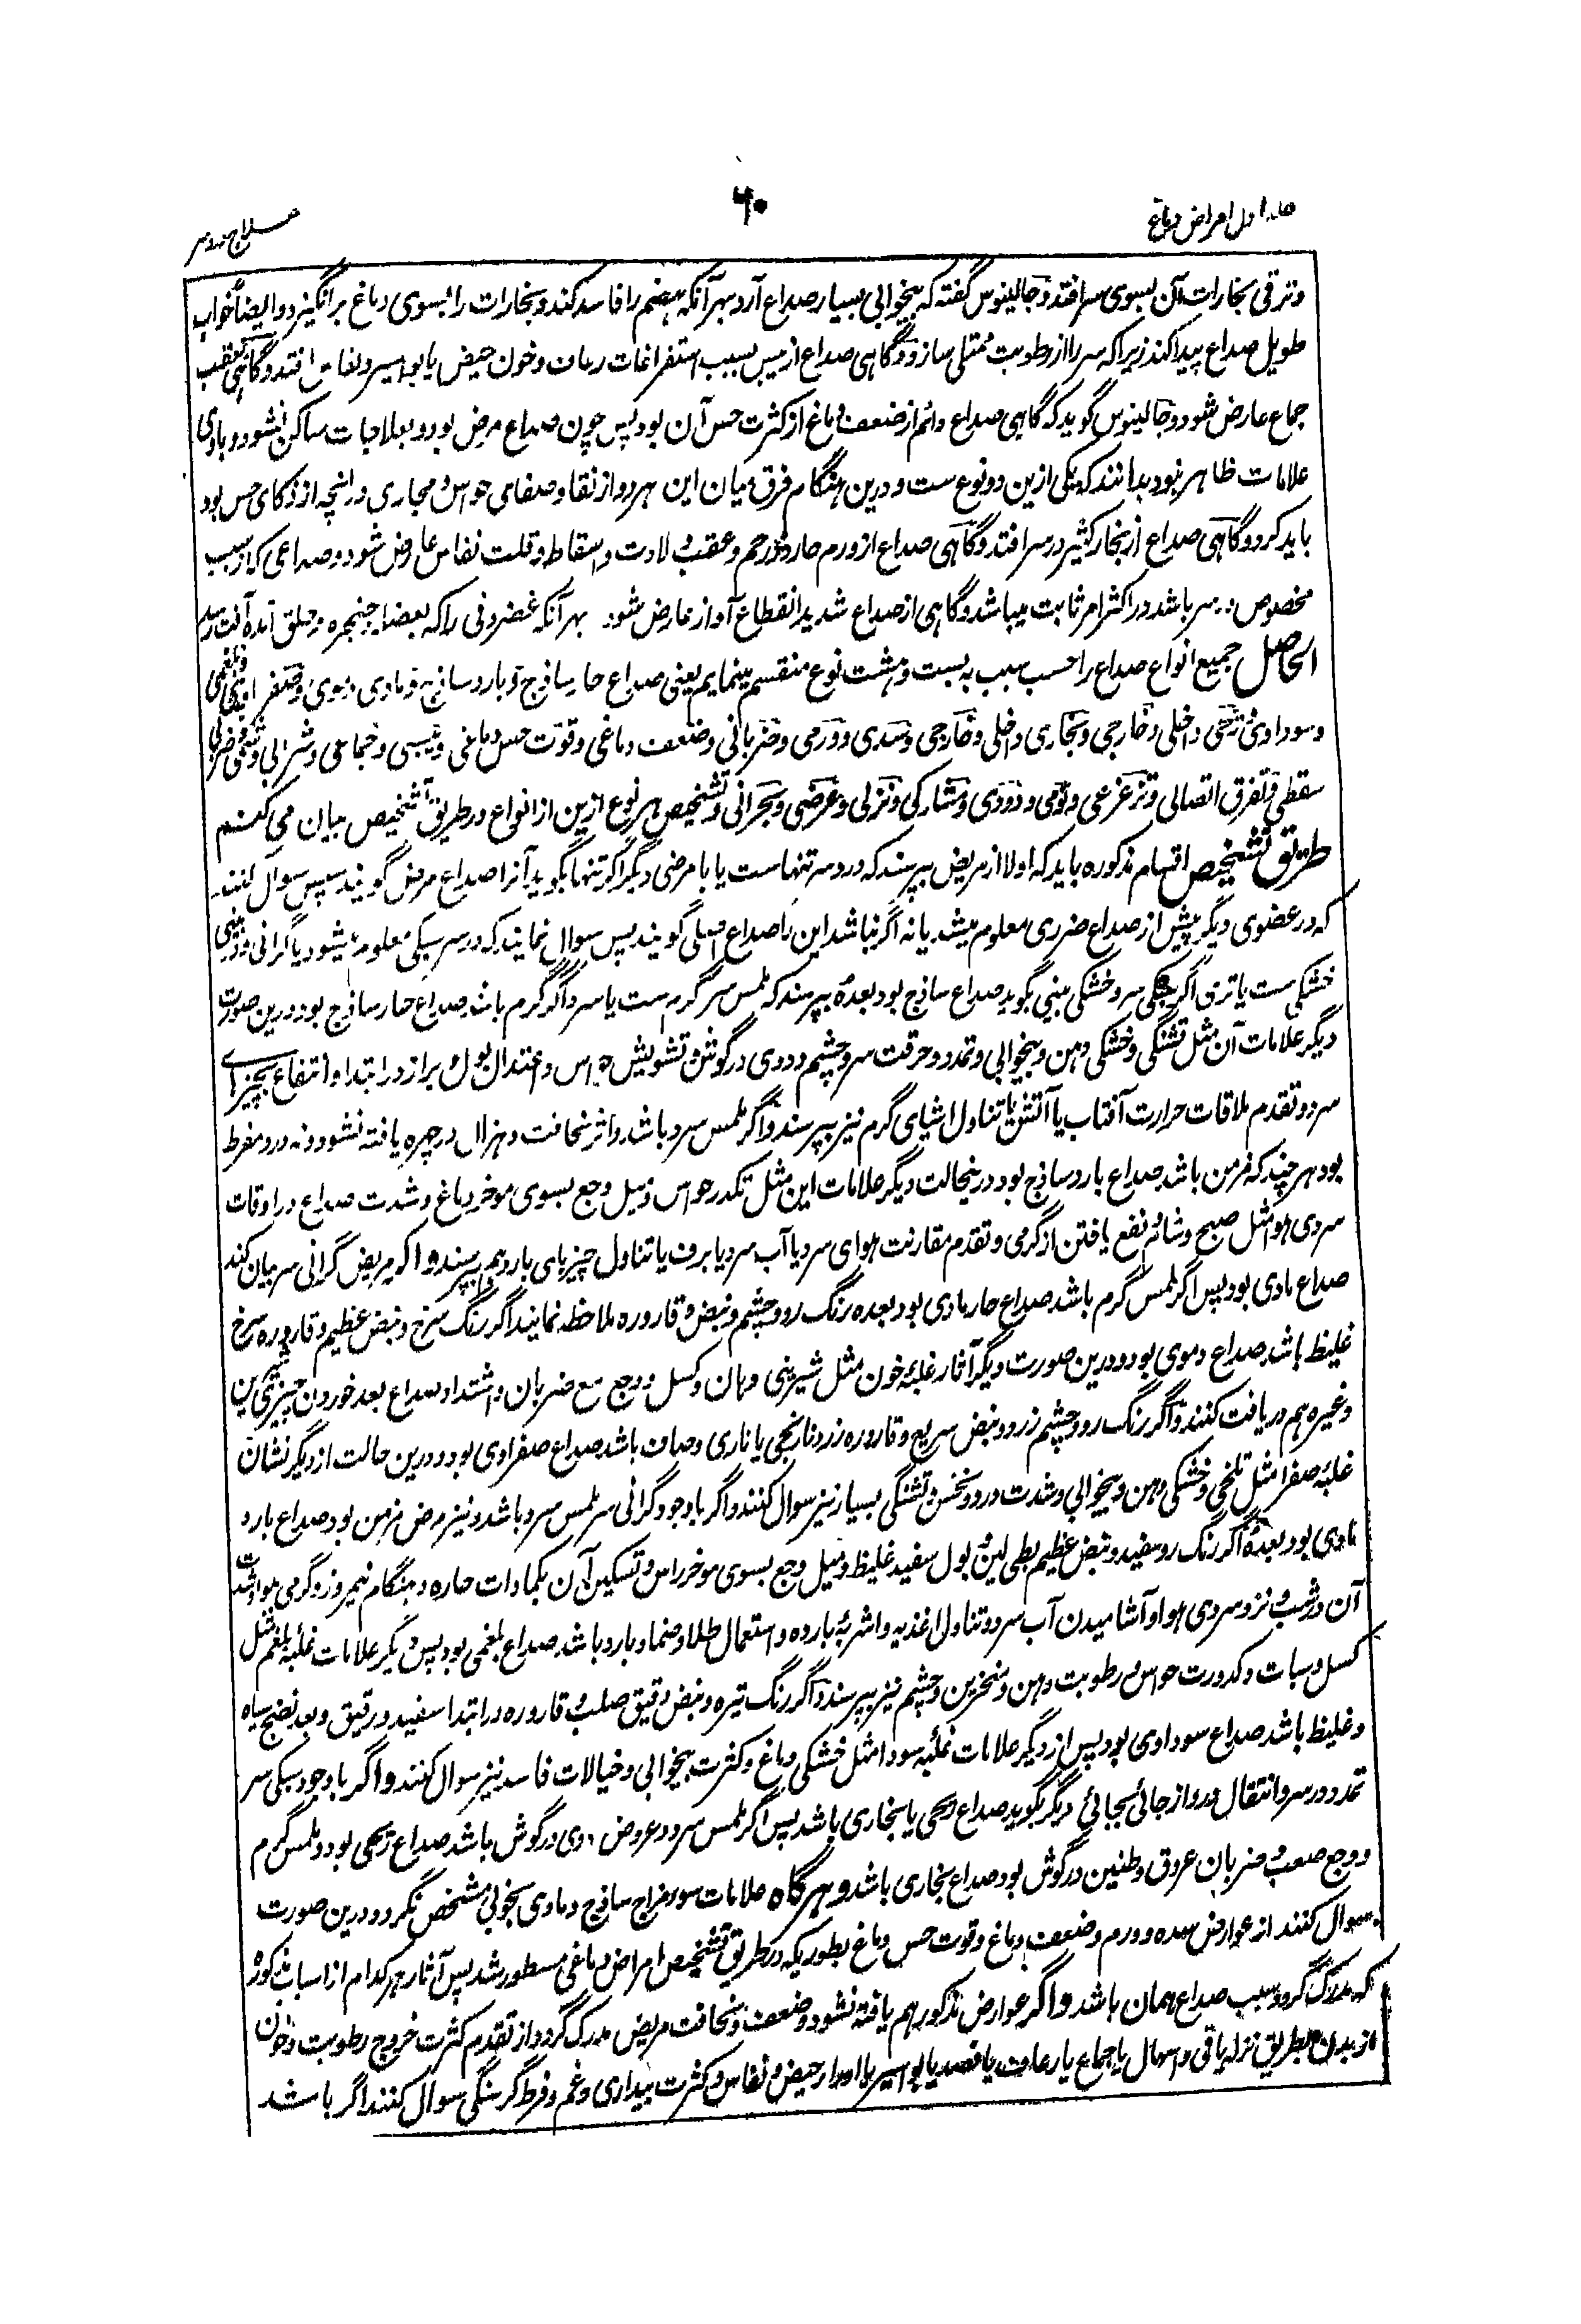 جلد اول امراض دماغ
۶۰
علاج صداع
وترقی بخارات آن بسوی سر افتد و جالینوس گفته که بیخوابی بسیار صداع آرد بهر آنکه هضم را فاسد کند و بخارات را بسوی دماغ برانگیزد و ایضاً خواب
طویل صداع پیدا کند زیرا که سر را از رطوبت ممتلی سازد و گاهی صداع از یبس بسبب استفراغات رعاف و خون حیض یا بواسیر و نفاس افتد و گاهی بعقب
جماع عارض شود و جالینوس گوید که گاهی صداع دائم از ضعف دماغ از کثرت حس آن بود پس چون صداع مرض بود و بعلاجات ساکن نشود و بادی
علامات ظاهر نبود بدانند که یکی ازین دو نوع ست و درین هنگام فرق میان این هر دو از نقا و صفای حواس و مجاری و آنچه از ذکای حس بود
باید کرد و گاهی صداع از بخار کثیر در سر افتد و گاهی صداع از ورم حار در رحم و عقب ولادت و اسقاط و قلت نفاس عارض شود و صداعی که از سبب
مخصوص در سر باشد در اکثر امر ثابت میباشد و گاهی از صداع شدید انقطاع آواز عارض شود بهر آنکه غضروفی را که بعضا حنجره و حلق آمده آفت رسد
الحاصل جمیع انواع صداع را حسب سبب به بست و هشت نوع منقسم مینمایم یعنی صداع حار ساذج و بارد ساذج و مادی دموی و صفراوی و بلغمی
و سوداوی و ریحی داخلی و خارجی و بخاری داخلی و خارجی و سدی و ورمی و ضربانی و ضعف دماغی و قوت حس دماغی و یبسی و جماعی و شرابی و شمی و ضربی
سقطی و تفرق اتصالی و تزعزعی و نومی و دودی و مشارکی و نزلی و عرضی و بحرانی و تشخیص هر نوع ازین از انواع در طریق تشخیص بیان می کنم
طریق تشخیص اقسام مذکوره باید که اولا از مریض بپرسند که درد سر تنهاست یا با مرضی دیگر اگر تنها بگوید آنرا صداع مرض گویند سپس سوال کنند
که در عضوی دیگر پیش از صداع ضرری معلوم میشد یا نه اگر نباشد این را صداع اصلی گویند پس سوال نمایند که در سر سبکی معلوم میشود یا گرانی و در بینی
خشکی ست یا تری اگر سبکی سر و خشکی بینی بگوید صداع ساذج بود بعده بپرسند که ملمس سر گرم ست یا سرد اگر گرم باشد صداع حار ساذج بود و درین صورت
دیگر علامات آن مثل تشنگی و خشکی دهن و بیخوابی و تمدد و حرقت سر و چشم و دوی در گوش و تشویش حواس و اعتدال بول و براز در ابتدا و انتفاع بچیزهای
سرد و تقدم ملاقات حرارت آفتاب یا آتش یا تناول اشیای گرم نیز بپرسند و اگر ملمس سرد باشد و اثر نحافت و هزال در چهره یافته نشود و نه درد مفرط
بود هر چند که مزمن باشد صداع بارد ساذج بود درینحالت دیگر علامات این مثل تکدر حواس و میل وجع بسوی موخر دماغ و شدت صداع در اوقات
سردی هوا مثل صبح و شام و نفع یافتن از گرمی و تقدم مقارنت هوای سرد یا آب سرد یا برف یا تناول چیزهای بارد هم بپرسند و اگر مریض گرانی سر بیان کند
صداع مادی بود پس اگر ملمس گرم باشد صداع حار مادی بود بعده رنگ رو و چشم و نبض و قاروره ملاحظه نمایند اگر رنگ سرخ و نبض عظیم و قاروره سرخ
غلیظ باشد صداع دموی بود و درین صورت دیگر آثار غلبۀ خون مثل شیرینی دهان و کسل و وجع مع ضربان و اشتداد صداع بعد خوردن چیز شیرین
و غیره هم دریافت کنند و اگر رنگ رو و چشم زرد و نبض سریع و قاروره زرد نارنجی یا ناری و صاف باشد صداع صفراوی بود و درین حالت از دیگر نشان
غلبۀ صفرا مثل تلخی و خشکی دهن و بیخوابی و شدت درد و نخس و تشنگی بسیار نیز سوال کنند و اگر با وجود گرانی سر ملمس سرد باشد و نیز مرض مزمن بود صداع بارد
مادی بود بعده اگر رنگ رو سفید و نبض عظیم بطی لین و بول سفید غلیظ و میل وجع بسوی موخر راس و تسکین آن بکمادات حاره و هنگام نیمروز و گرمی هوا و شدت
آن در شب و نزد سردی هوا و آشامیدن آب سرد و تناول اغذیه و اشربۀ بارده و استعمال طلا و ضماد بارد باشد صداع بلغمی بود پس دیگر علامات غلبۀ بلغم مثل
کسل و سبات و کدورت حواس و رطوبت دهن و منخرین و چشم نیز بپرسند و اگر رنگ تیره و نبض دقیق صلب و قاروره در ابتدا سفید و رقیق و بعد نضج سیاه
و غلیظ باشد صداع سوداوی بود پس از دیگر علامات غلبۀ سودا مثل خشکی دماغ و کثرت بیخوابی و خیالات فاسد نیز سوال کنند و اگر با وجود سبکی سر
تمدد در سر و انتقال درد از جائی بجائی دیگر بگوید صداع ریحی یا بخاری باشد پس اگر ملمس سرد و عروض دوی در گوش باشد صداع ریحی بود و ملمس گرم
و وجع صعب و ضربان عروق و طنین در گوش بود صداع بخاری باشد و هرگاه علامات سوء مزاج ساذج و مادی بخوبی مشخص نگردد درین صورت
سوال کنند از عوارض سده و ورم و ضعف دماغ و قوت حس دماغ بطوریکه در طریق تشخیص امراض دماغی مسطور شد پس آثار هر کدام از اسباب مذکور
که مدرک گردد سبب صداع همان باشد و اگر عوارض مذکور هم یافته نشود و ضعف و نحافت مریض مدرک گردد از تقدم کثرت خروج رطوبت و خون
از بدن بطریق نزله یا قی و اسهال یا جماع یا رعاف یا فصد یا بواسیر یا ادرار حیض و نفاس و کثرت بیداری و غم و فرط گرسنگی سوال کنند اگر باشد